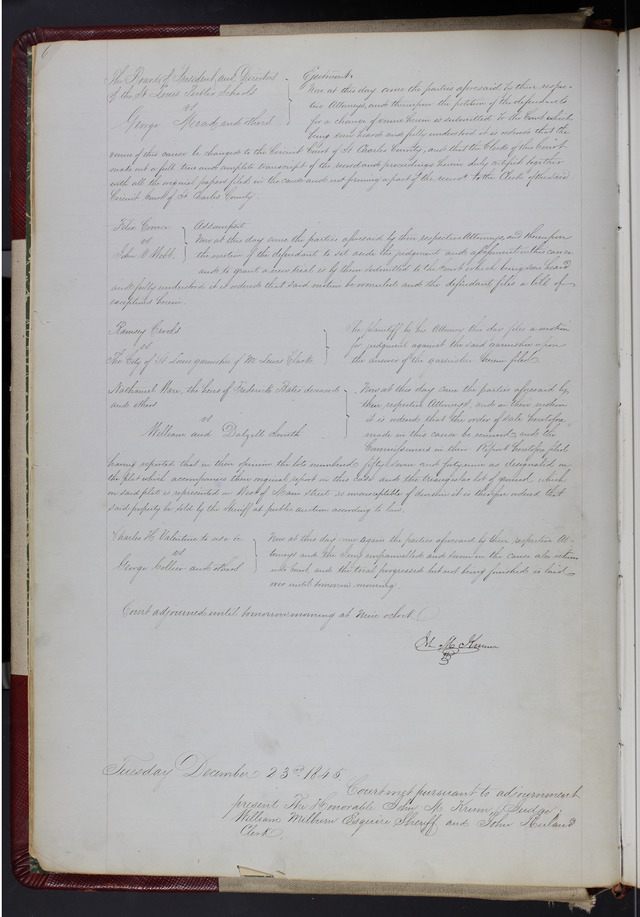 The Board of President and Directors
of the St Louis Public Schools
vs
George Mead and others
Ejectment.
Now at this day come the parties aforesaid by their respec-
tive Attorneys, and thereupon the petition of the defendants
for a change of venue herein is submitted to the Court which
being seen heard and fully understood it is ordered that the
venue of this cause be changed to the Circuit Court of St Charles County, and that the Clerk of this Court
make out a full true and complete transcript of the record and proceedings herein duly certified together
with all the original papers filed in the cause and not forming a part of the record to the Clerk of the said
Circuit Court of St Charles County.
Felix
vs
John Webb.
Assumpsit
Now at this day come the parties aforesaid by their respective Attorneys, and thereupon
the motion of the defendant to set aside the judgment and assessment in this cause
and to grant a new trial is by them submitted to the Court which being seen heard
and fully understood it is ordered that said motion be overruled and the defendant files a bill of
exceptions herein.
Ramsey Crooks
vs
The City of St Louis garnishee of Wm Lewis Clark
The plaintiff by his Attorney this day files a motion
for judgment against the said garnishee upon
the answer of the garnishee herein filed.
Nathaniel Ware, the heirs of Frederick Bates deceased
and others
vs
William and Dalzell Smith
Now at this day come the parties aforesaid by
their respective Attorneys, and on their motion
it is ordered that the order of sale heretofore
made in this cause be and the
Commissioners in their Report heretofore filed
having reported that in their opinion the lots numbered fifty seven and forty as designated on
the plat which accompanies their original report in this case and the triangular lot of ground which
on said plat is represented as West of Main street is unsusceptible of division it is therefore ordered that
said property be sold by the Sheriff at public auction according to law.
Charles H Valentine to use &c
vs
George Collier and others
Now at this day come again the parties aforesaid by their respective At-
torneys and the Jury empannelled and sworn in the cause also return
into Court, and the trial progressed but not being finished is laid
over until tomorrow morning.
Court adjourned until tomorrow morning at nine oclock
Jn M Krum
Tuesday December 23rd 1845
Court met pursuant to adjournment
present The Honorable John M Krum, Judge;
William Milburn Esquire Sheriff and John Ruland
Clerk.